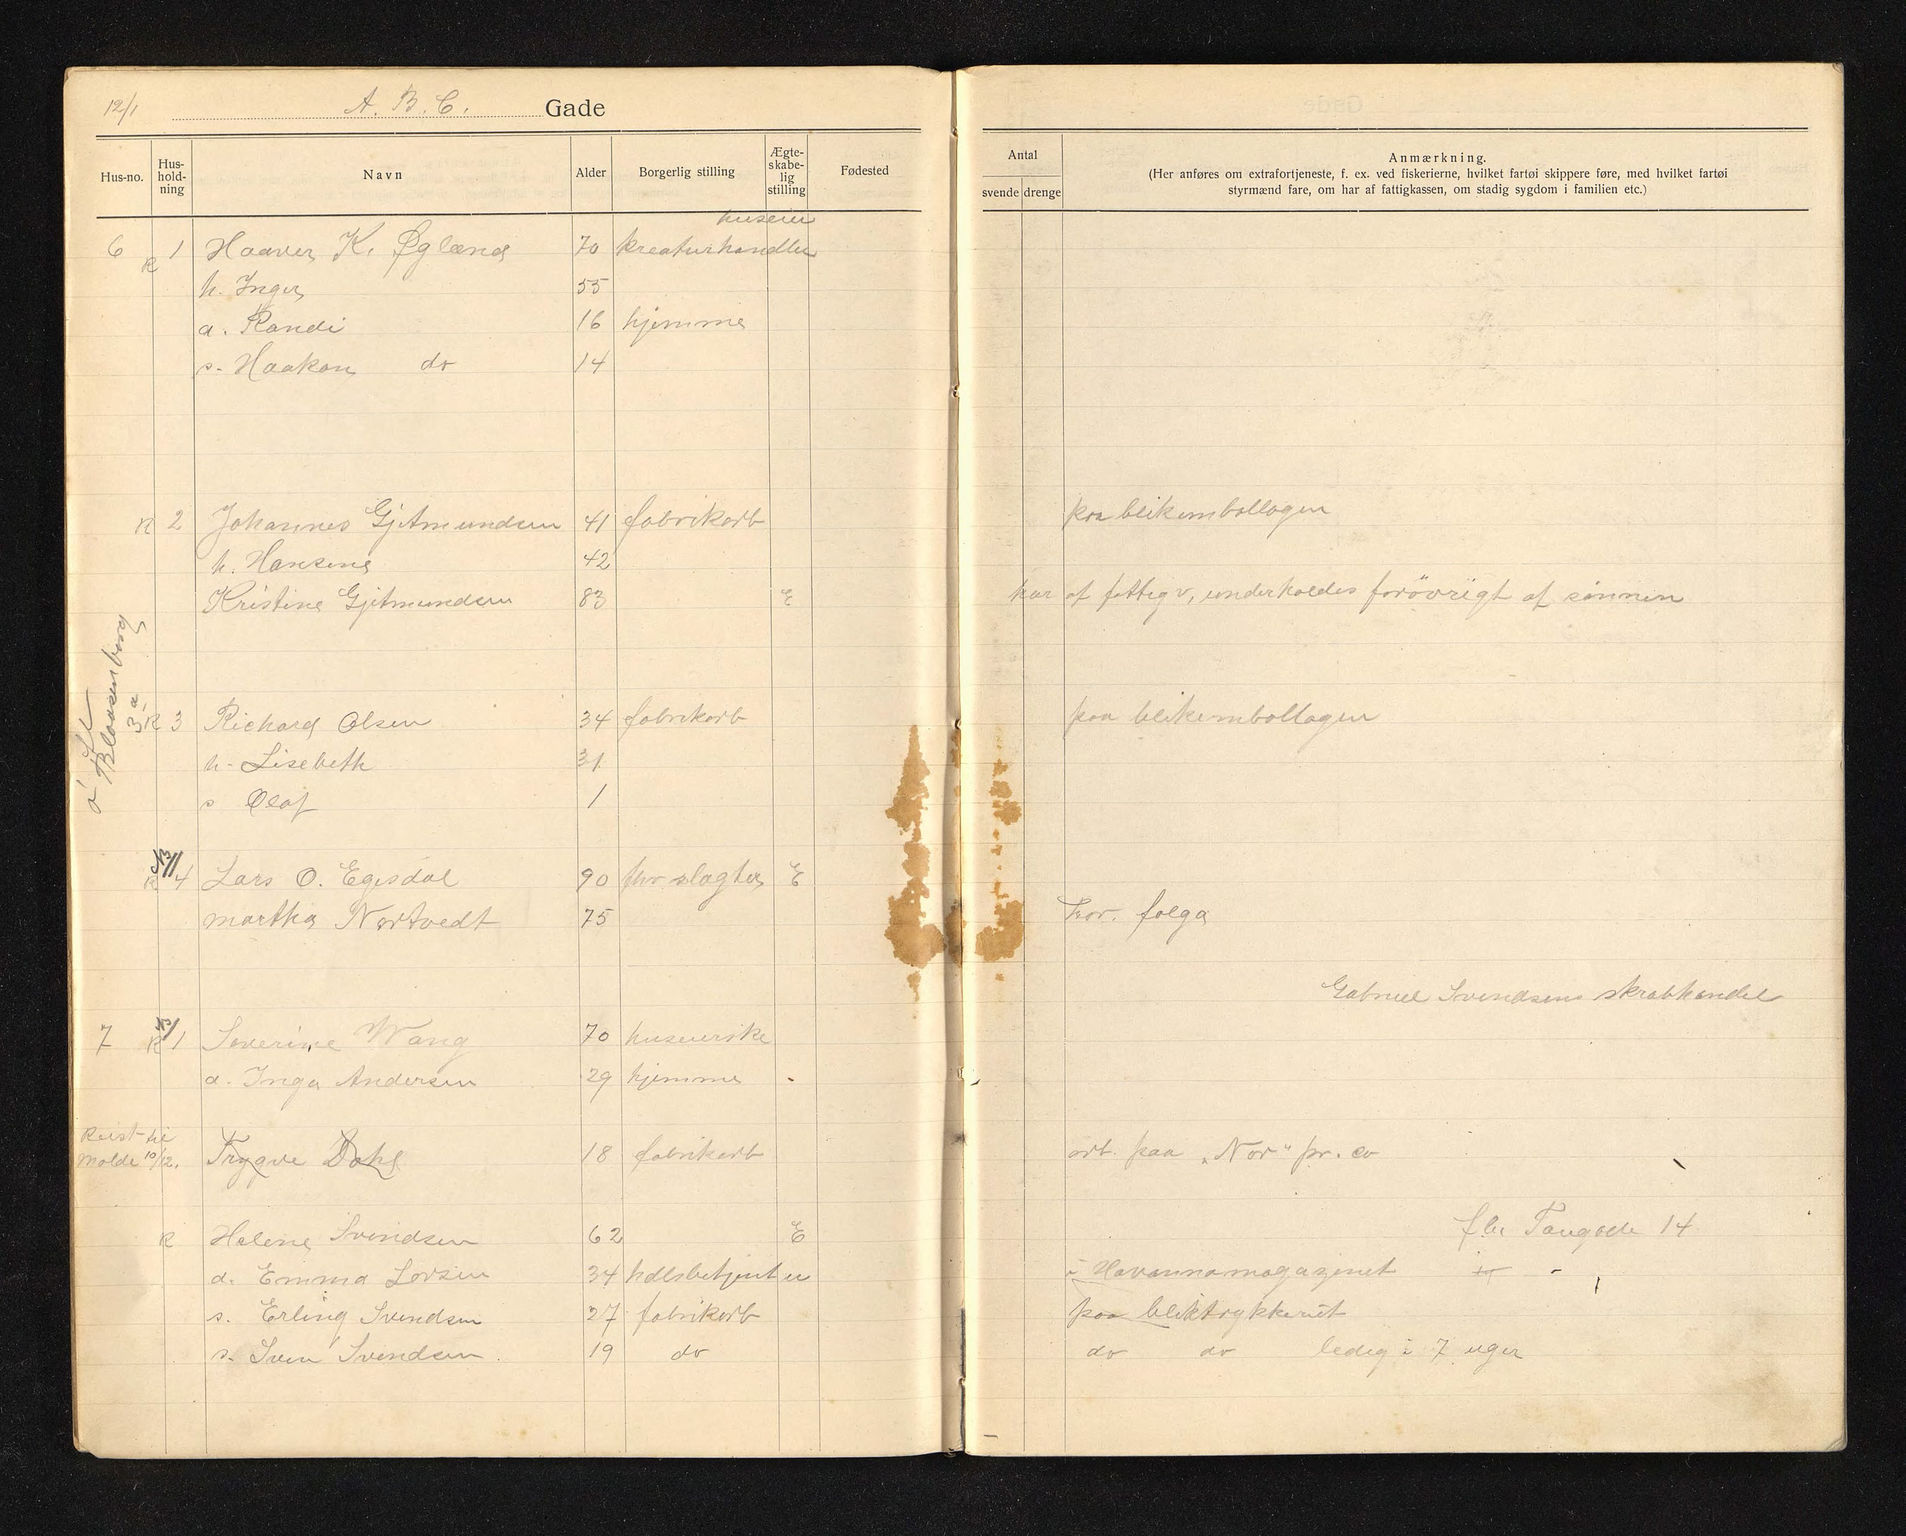 12/1 A. B. C. Gade
Hus-no. Hus-hold-ning Navn Alder Borgerlig stilling Ægte-skabe-lig stilling Fødested
Antal svende drenge
Anmærkning.
(Her anføres om extrafortjeneste, f. ex. ved fiskerierne, hvilket fartøi skippere føre, med hvilket fartøi
styrmænd fare, om har af fattigkassen, om stadig sygdom i familien etc.)
huseier
6 R 1 Haaver K. Øglænd 70 kreaturhandler
h. Inger 55
d. Randi 16 hjemme
s. Haakon do 14
R 2 Johannes Gjetmundsen 41 fabrikarb paa blikemballagen
h. Hansine 42
Kristine Gjetmundsen 83 E har af fattigv, underholdes forøvrigt af sønnen
Blaasenborg
3a
R 3 Richard Olsen 34 fabrikarb paa blikemballagen
h. Lisebeth 31
s Olaf 1
R 4 Lars O. Egesdal 90 fhv. slagter E
Martha Nortvedt 75 hor. folga
Gabriel Svendsens skrabhandel
7 R 1 Severine Wang 70 huseierske
d. Inga Andersen 29 hjemme -
Reist til
Molde 10/12. Trygve Dahl 18 fabrikarb arb. paa "Nor" pr. co
R Helene Svendsen 62 E fler Taugade 14
d. Emma Larsen 34 hdlsbetjent en i Havannamagazinet
s. Erling Svendsen 27 fabrikarb paa bliktrykkeriet
s. Sven Svendsen 19 do do do ledig i 7 uger